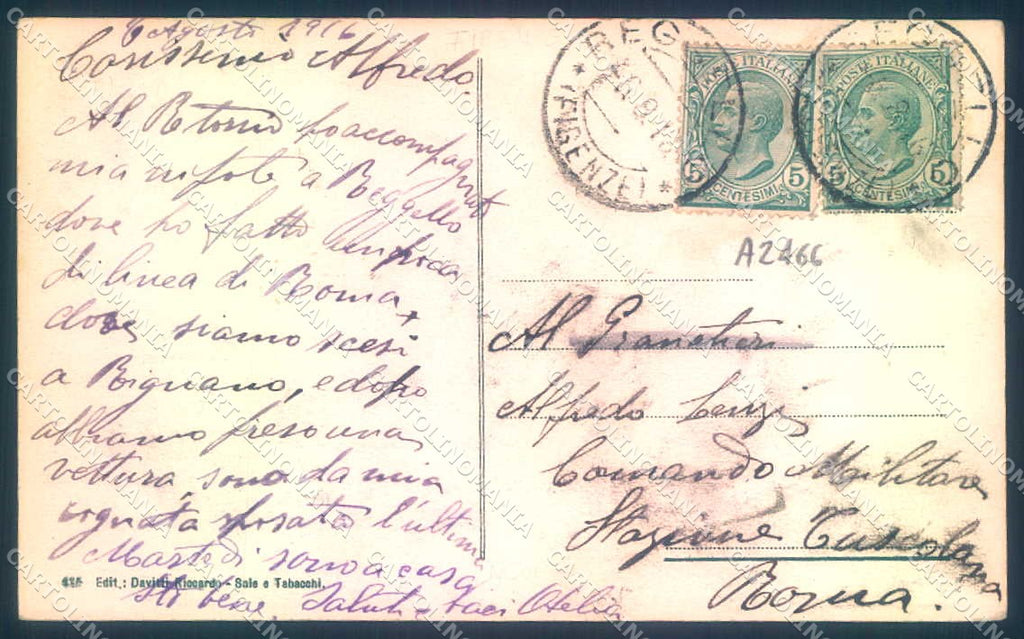 6 Agosto 1916
Carissimo Alfredo,
Al Retorno ho accompagnato
mia nipote a Reggello
dove ho fatto
di linea di Roma
dove siamo scesi
a Rignano, e dopo
abbiamo preso una
vettura, sono da mia
cognata sposata l'ultimo
Martedi sono a casa
Sto bene, Saluti e baci Otelia
416 Edit.: Davitti Riccardo - Sale e Tabacchi.
REG
(FIRENZE)
POSTE ITALIANE
5 CENTESIMI 5
POSTE ITALIANE
5 CENTESIMI 5
A2466
Al Granatieri
Alfredo Lenzi
Comando Militare
Stazione Tuscolana
Roma.
CARTOLINOMANIA